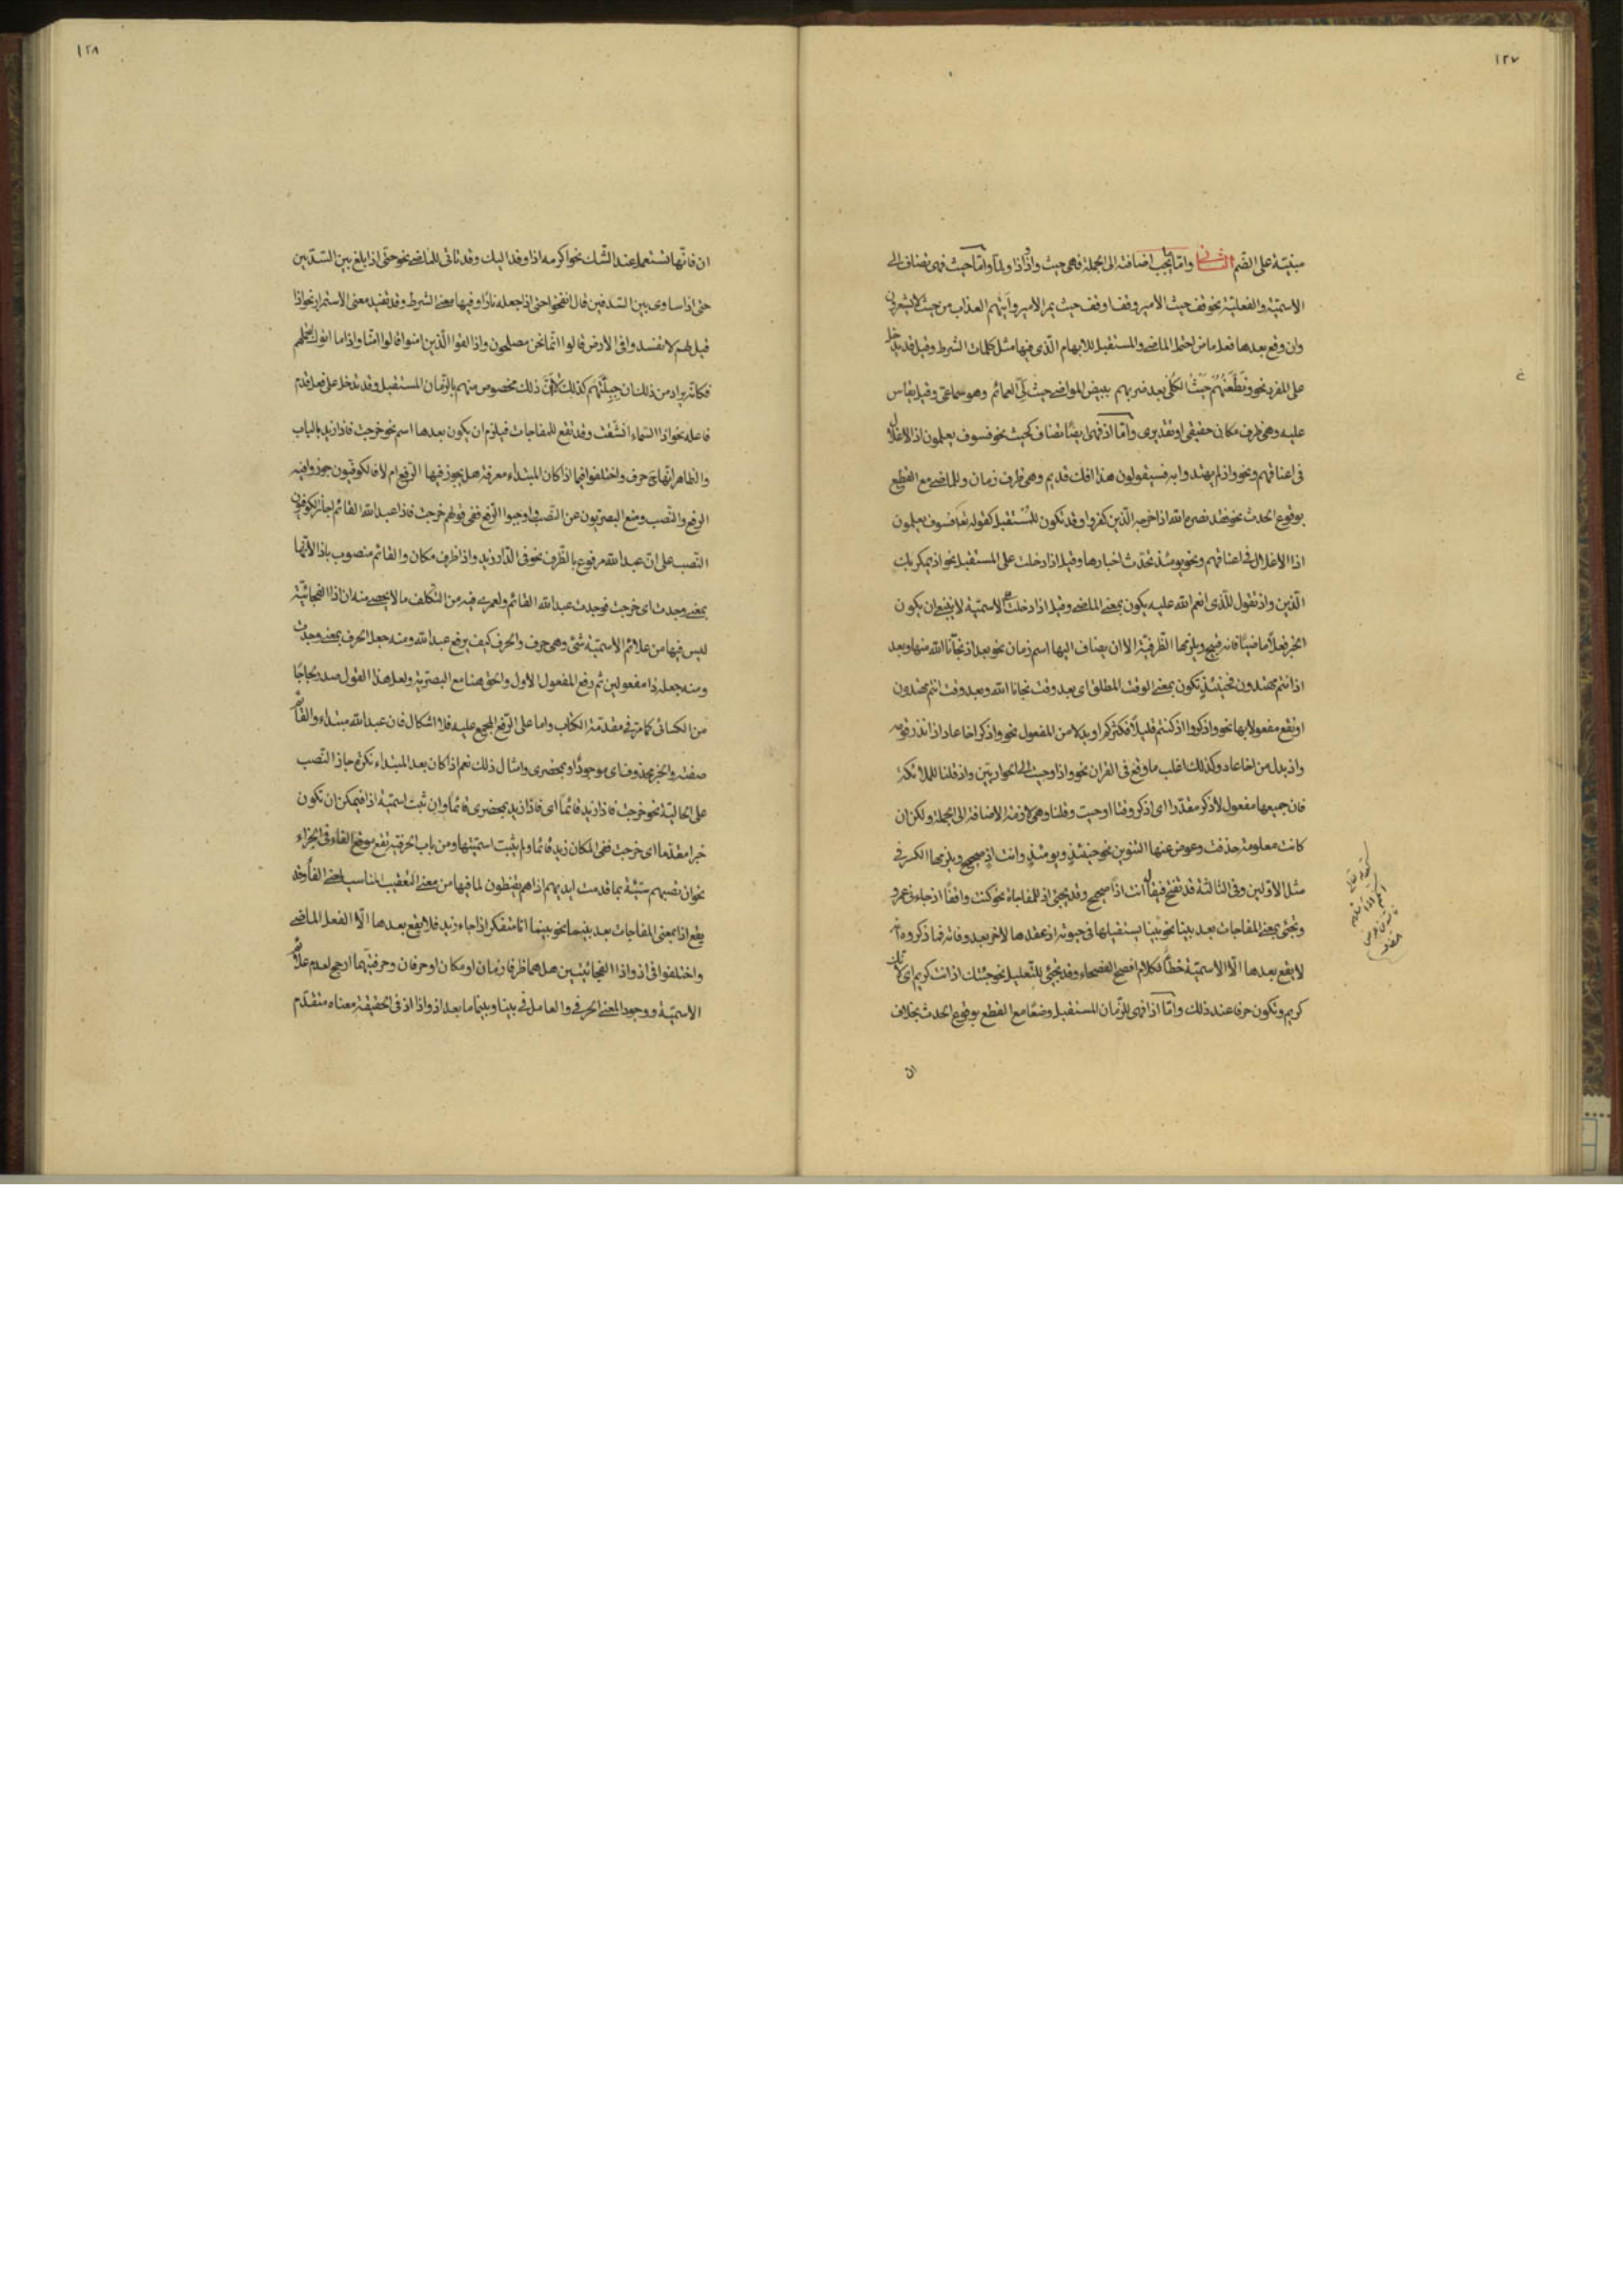 ١٢٧
مبنيّة على الضم الثاني وامّا يجب اضافته الى الجملة فهى حيث واذ واذا ولمّا وامّا حيث فهى تضاف الى
الاسميّة والفعليّة نحو قف حيث الامير وقف او قف حيث يمر الامير واتيهم العذاب من حيث لا يشعرون
وان وقع بعدها فعل ماض احتمل الماضى والمستقبل للابهام الّذى فيها مثل كلمات الشرط وقيل قد يدخل
على المفرد نحو ونطعنهم حيث الكلى بعد ضربهم ببيض المواضى حيث لىّ العمائم وهو سماعى وقيل يقاس
عليه وهى ظرف مكانى حقيقى او تقديرى وامّا اذ فهى ايضًا تضاف كحيث نحو فسوف يعلمون اذ الاغلال
فى اعناقهم ونحو واذ لم يهتدوا به فسيقولون هذا افك قديم وهى ظرف زمان وللماضى مع القطع
بوقوع الحدث نحو فقد نصره الله اذ اخرجه الّذين كفروا وقد تكون للمستقبل كقوله تعا فسوف يعلمون
اذ الاغلال فى اعناقهم ونحو يومئذ تحدث اخبارها وقيل اذا دخلت على المستقبل نحو اذ يمكر بك
الّذين واذ تقول للّذى انعم الله عليه يكون بمعنى الماضى وقيل اذا دخلت على الاسميّة لا ينبغى ان يكون
الخبر فعلًا ماضيًا فانه قبيح ويلزمها الظرفيّة الا ان يضاف اليها اسم زمان نحو بعد اذ نجّانا الله منها وبعد
اذ انتم مهتدون فحينئذ تكون بمعنى الوقت المطلق اى بعد وقت نجانا الله وبعد وقت انتم مهتدون
او تقع مفعولا بها نحو واذكروا اذ كنتم قليلًا فكثركم او بدلا من المفعول نحو واذكر اخا عاد اذ انذر قومه
واذ بدل من اخا عاد وكذلك اغلب ما وقع فى القران نحو واذ اوحيت الى الحواريّين واذ قلنا للملائكة
فان جميعها مفعول لاذكر مقدّرا اى اذكر وقتا اوحيت وقلنا وهى لازمة الاضافة الى الجملة ولكن ان
كانت معلومة حذفت وعوض عنها التنوين نحو حينئذٍ ويومئذٍ وانت اذٍ صحيح ويلزمها الكسر فى
مثل الاوّلين وفى الثالثة قد تفتح فيقال انت اذًا صحيح وقد يجيئ اذ للمفاجاة نحو كنت واقفًا اذ جاءنى عمرو
وتجئى بمعنى المفاجات بعد بينا نحو بينا يستقيلها فى حيوته اذ عقدها لاخر بعد وفاته فما ذكروه انّه
لا يقع بعدها الّا الاسميّة خطأ لكلام افصح الفصحاء وقد يجيئ للتعليل نحو جئتك اذ انت كريم اى لانك
كريم وتكون حرفا عند ذلك وامّا اذا فهى للزّمان المستقبل وضعًا مع القطع بوقوع الحدث بخلاف
ان
١٢٨
ان فانّها تستعمل عند الشّك نحو اكرمه اذا وفد اليك وقد تاتى للماضى نحو حتى اذا بلغ بين السّدّين
حتى اذا ساوى بين الصّدفين قال انفخوا حتى اذا جعله نارًا وفيها معنى الشرط وقد تفيد معنى الاستمرار نحو اذا
قيل لهم لا تفسدوا فى الارض قالوا انّما نحن مصلحون واذا لقوا الّذين امنوا قالوا امنّا واذا ما اتوك لتحملهم
فكانّه يراد من ذلك ان جبلّتهم كذلك لا انّ ذلك مخصوص منهم بالزّمان المستقبل وقد تدخل على فعل قدم
فاعله نحو اذا السّماء انشقت وقد تقع للمفاجات فيلزم ان يكون بعدها اسم نحو خرجت فاذا زيد بالباب
والظاهر انّها ح حرف واختلفوا فيما اذا كان المبتداء معرفة هل يجوز فيها الرّفع ام لا فالكوفيّون جوزوا فيه
الرفع والنّصب ومنع البصريّون عن النّصب واوجبوا الرّفع ففى قولهم خرجت فاذا عبد الله القائم اجاز الكوفيّون
النّصب على انّ عبد الله مرفوع بالظّرف نحو فى الدّار زيد واذا ظرف مكان والقائم منصوب باذا لانّها
بمعنى وجدت اى خرجت فوجدت عبد الله القائم ولعمرى فيه من التكلف ما لا يحصى منه ان اذا الفجائيّة
ليس فيها من علائم الاسميّة شئ وهى حرف والحرف كيف يرفع عبد الله ومنه جعل الحرف بمعنى وجدت
ومنه جعله ذا مفعولين ثم رفع المفعول الاول والحق هنا مع البصريّة ولعل هذا القول صدر لجاجًا
من الكسائى كما مرّ فى مقدّمة الكتاب واما على الرّفع المجمع عليه فلا اشكال فان عبد الله مبتداء والقائم
صفته والخبر محذوف اى موجودًا او بحضرى وامثال ذلك نعم اذا كان بعد المبتداء نكرة جاز النّصب
على الحاليّة نحو خرجت فاذا زيد قائمًا اى فاذا زيد بحضرى قائمًا وان ثبت اسميّة اذا فيمكن ان تكون
خبرا مقدّما اى خرجت ففى المكان زيد قائما ولم يثبت اسميّتها ومن باب الحرفيّة تقع موقع الفاء فى الجزاء
نحو ان تصبهم سيّئة بما قدمت ايديهم اذا هم يقنطون لما فيها من معنى التعقيب المناسب لمعنى الفاء وقد
يقع اذا بمعنى المفاجات بعد بينما نحو بينما انا متفكر اذا جاء زيد فلا يقع بعدها الّا الفعل الماضى
واختلفوا فى اذ واذا الفجائيّتين هل هما ظرفا زمان او مكان او حرفان وحرفيّتهما ارجح لعدم علائم
الاسميّة ووجود المعنى الحرفى والعامل فى بينا وبينما ما بعد اذ واذا اذ فى الحقيقة معناه متقدّم